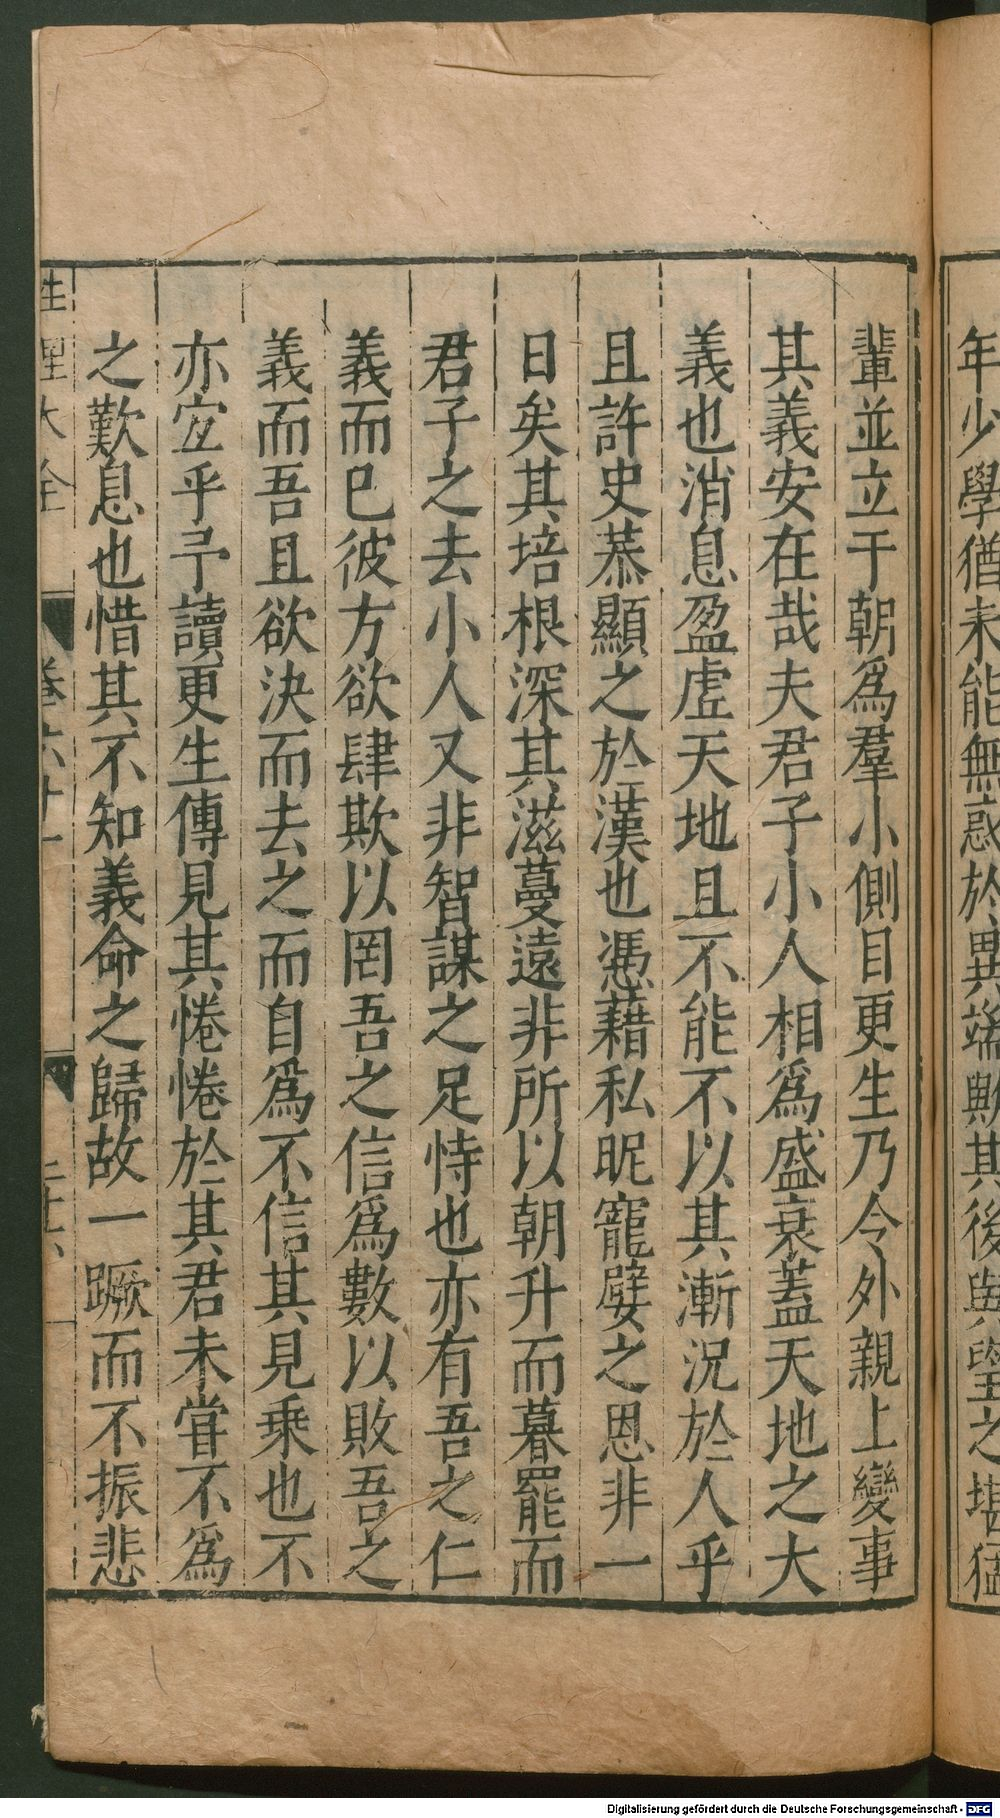 年少學猶未能無惑於異端歟其後與望之堪猛
輩並立于朝爲羣小側目更生乃令外親上變事
其義安在哉夫君子小人相爲盛衰蓋天地之大
義也消息盈虛天地且不能不以其漸況於人乎
且許史恭顯之於漢也憑藉私昵寵嬖之恩非一
日矣其培根深其滋蔓遠非所以朝升而暮罷而
君子之去小人又非智謀之足恃也亦有吾之仁
義而已彼方欲肆欺以罔吾之信爲數以敗吾之
義而吾且欲決而去之而自爲不信其見乗也不
亦宐乎予讀更生傳見其惓惓於其君未甞不爲
之歎息也惜其不知義命之歸故一蹶而不振悲
性理大全
卷六十一
二十六
Digitalisierung gefördert durch die Deutsche Forschungsgemeinschaft - DFG